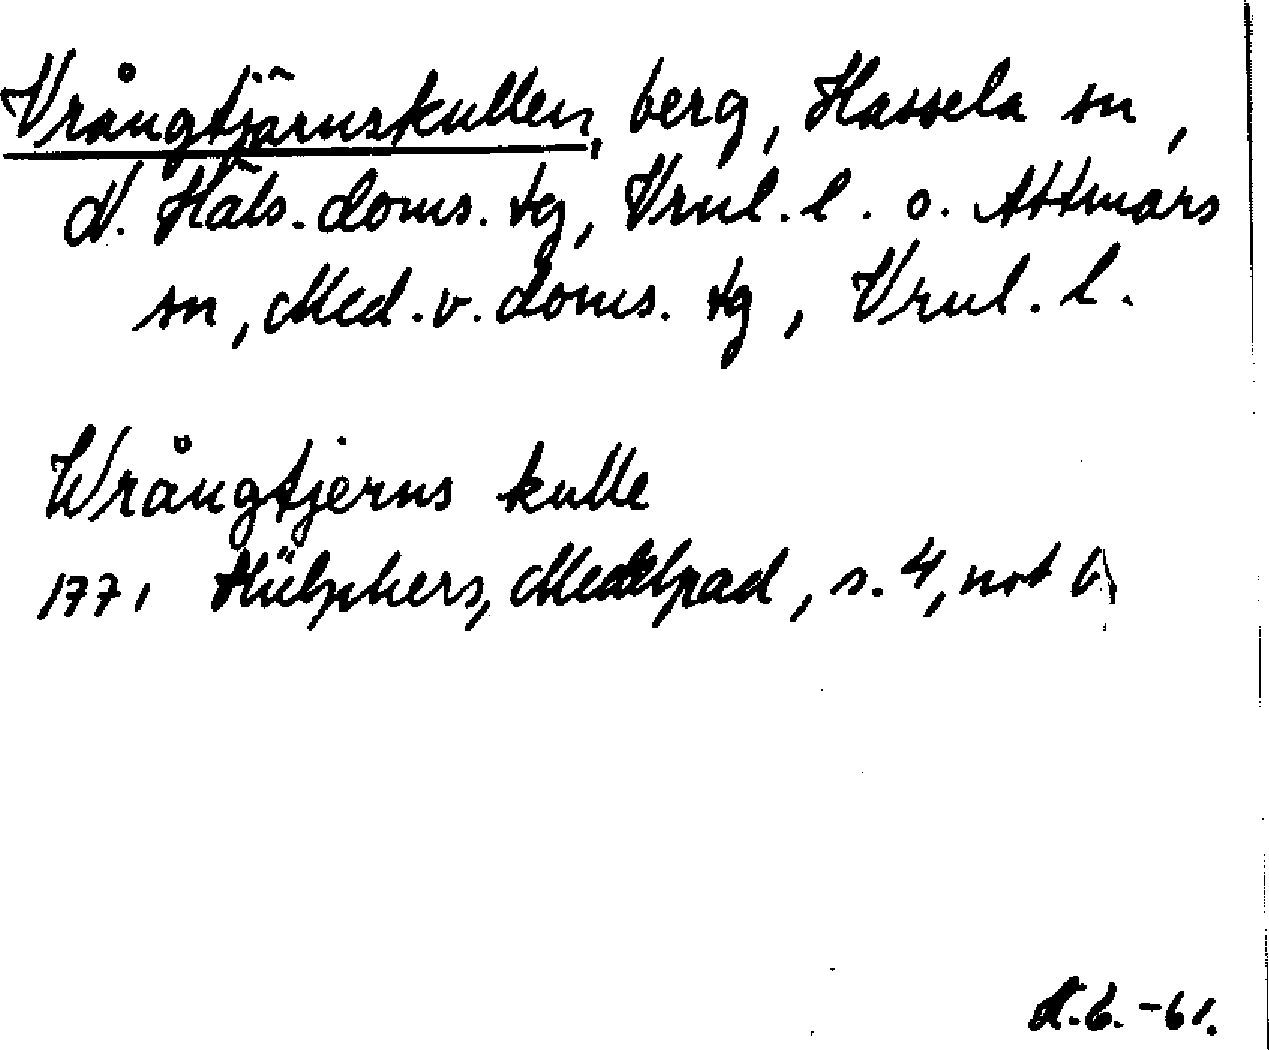 Vrångtjärnskullen, berg, Hassela sn,
N. Häls. doms. tg, Vrnl. l. o. Attmars
sn, Med. v. doms. tg, Vrnl. l.
Wrångtjerns kulle
1771 Hülphers, Medelpad, s. 4, not
-61.